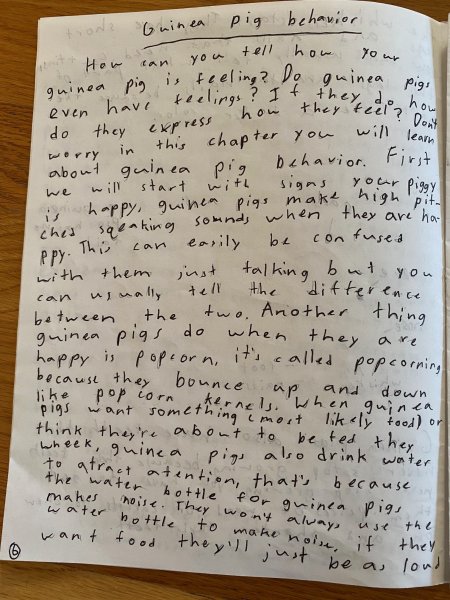 Guinea pig behavior
How can you tell how your
guinea pig is feeling? Do guinea pigs
even have feelings? If they do how
do they express how they feel? Don't
worry in this chapter you will learn
about guinea pig behavior. First
we will start with signs your piggy
is happy, guinea pigs make high pit-
ches sqeaking sounds when they are ha-
ppy. This can easily be confused
with them just talking but you
can usually tell the difference
between the two. Another thing
guinea pigs do when they are
happy is popcorn, it's called popcorning
because they bounce up and down
like popcorn kernels. When guinea
pigs want something (most likely food) or
think they're about to be fed they
wheek, guinea pigs also drink water
to atract atention, that's because
the water bottle for guinea pigs
makes noise. They won't always use the
water bottle to make noise, if they
want food they'll just be as loud
6